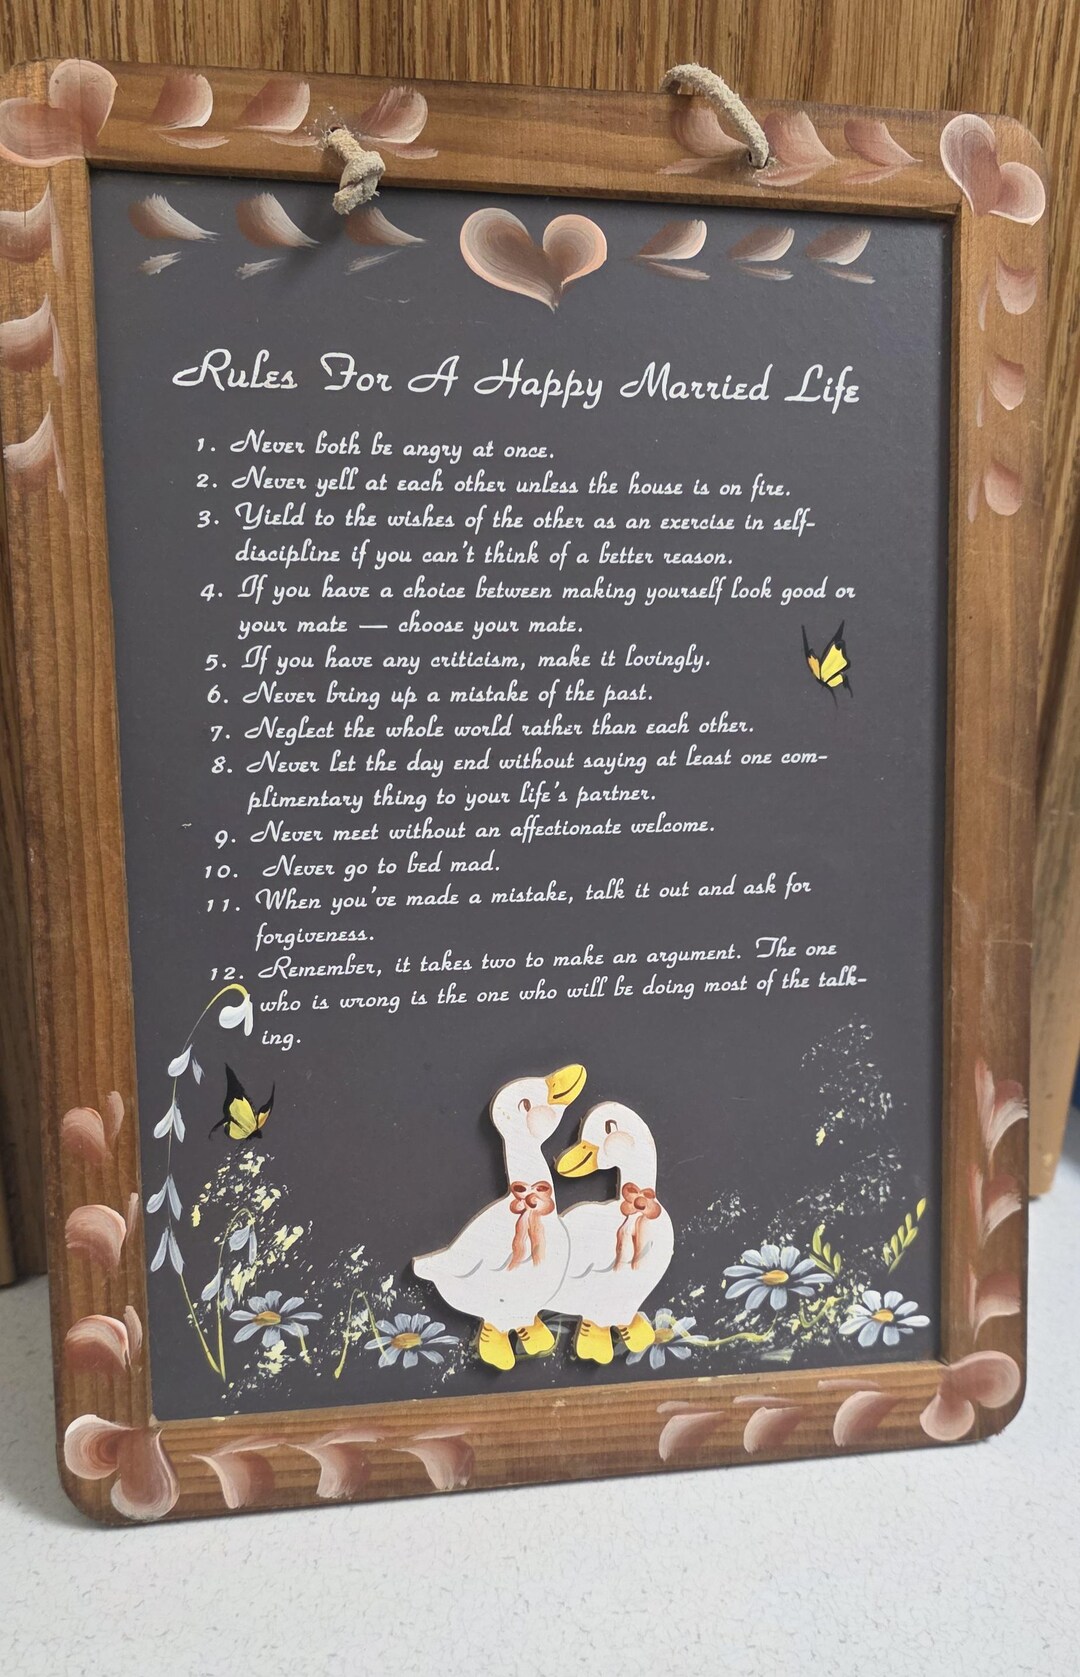 Rules For A Happy Married Life
1. Never both be angry at once.
2. Never yell at each other unless the house is on fire.
3. Yield to the wishes of the other as an exercise in self-
discipline if you can't think of a better reason.
4. If you have a choice between making yourself look good or
your mate — choose your mate.
5. If you have any criticism, make it lovingly.
6. Never bring up a mistake of the past.
7. Neglect the whole world rather than each other.
8. Never let the day end without saying at least one com-
plimentary thing to your life's partner.
9. Never meet without an affectionate welcome.
10. Never go to bed mad.
11. When you've made a mistake, talk it out and ask for
forgiveness.
12. Remember, it takes two to make an argument. The one
who is wrong is the one who will be doing most of the talk-
ing.